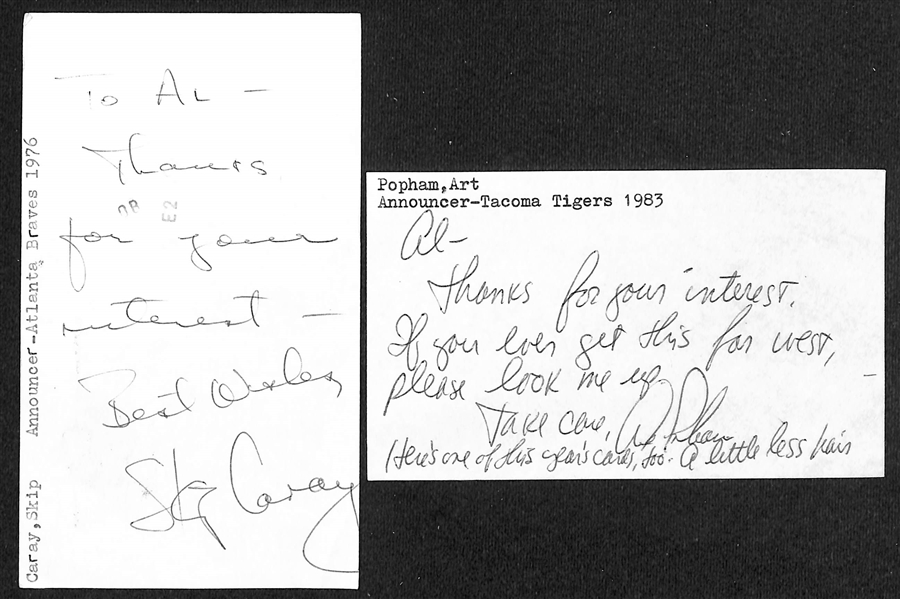 Caray,Skip Announcer-Atlanta Braves 1976
To Al -
Thanks
for your
interest -
Best Wishes
Skip Caray
Popham,Art
Announcer-Tacoma Tigers 1983
Al-
Thanks for your interest.
If you ever get this far west,
please look me up.
Take care, Art Popham
Here's one of this year's cards, too - a little less hair